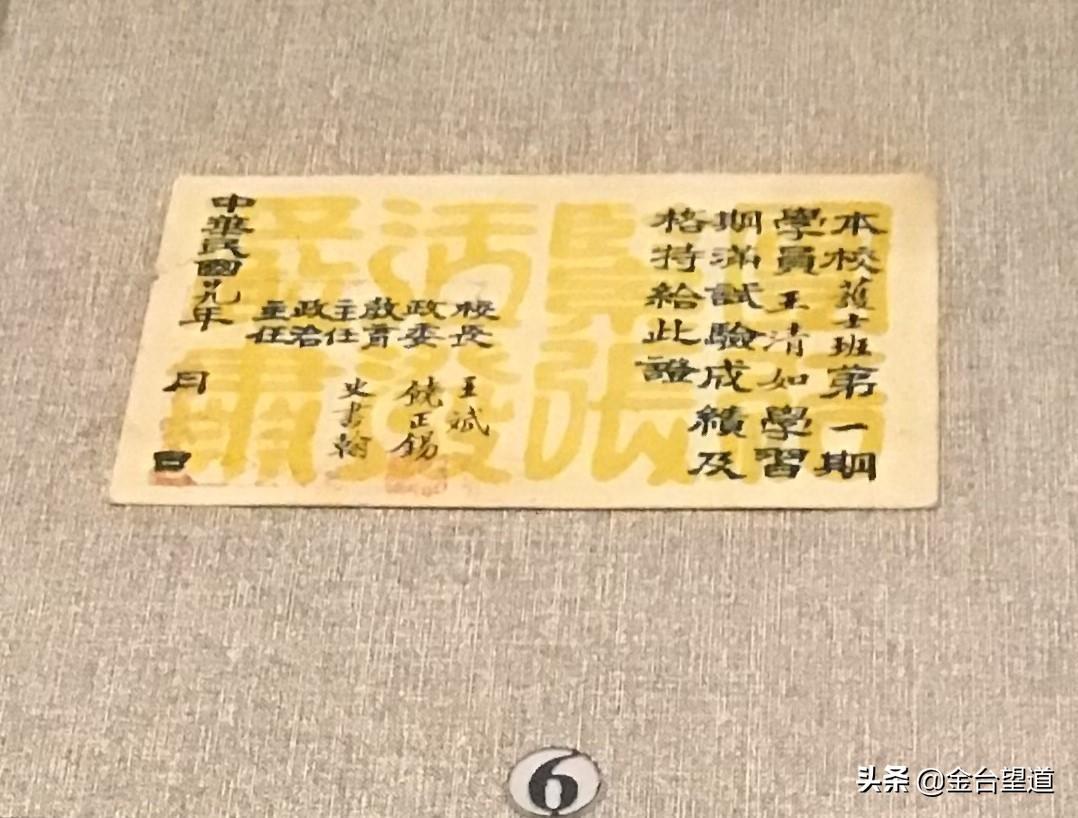 本校護士班第一期
學員王清如學習
期滿試驗成績及
格持給此證
校長 王斌
政委 饒正錫
教育主任 史書翰
政治主任
中華民國廿九年 月 日
團結
緊張
活潑
嚴肅
6
头条 @金台望道